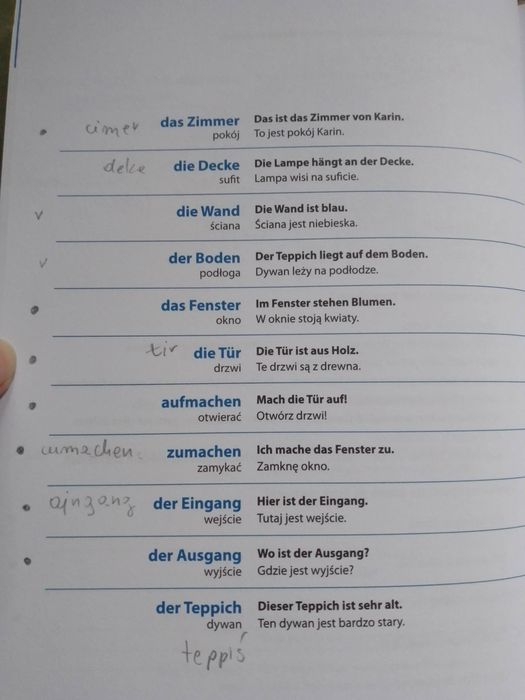 cimer das Zimmer Das ist das Zimmer von Karin.
pokój To jest pokój Karin.
deke die Decke Die Lampe hängt an der Decke.
sufit Lampa wisi na suficie.
die Wand Die Wand ist blau.
ściana Ściana jest niebieska.
der Boden Der Teppich liegt auf dem Boden.
podłoga Dywan leży na podłodze.
das Fenster Im Fenster stehen Blumen.
okno W oknie stoją kwiaty.
tir die Tür Die Tür ist aus Holz.
drzwi Te drzwi są z drewna.
aufmachen Mach die Tür auf!
otwierać Otwórz drzwi!
cumachen zumachen Ich mache das Fenster zu.
zamykać Zamknę okno.
ajngang der Eingang Hier ist der Eingang.
wejście Tutaj jest wejście.
der Ausgang Wo ist der Ausgang?
wyjście Gdzie jest wyjście?
der Teppich Dieser Teppich ist sehr alt.
dywan Ten dywan jest bardzo stary.
teppiś